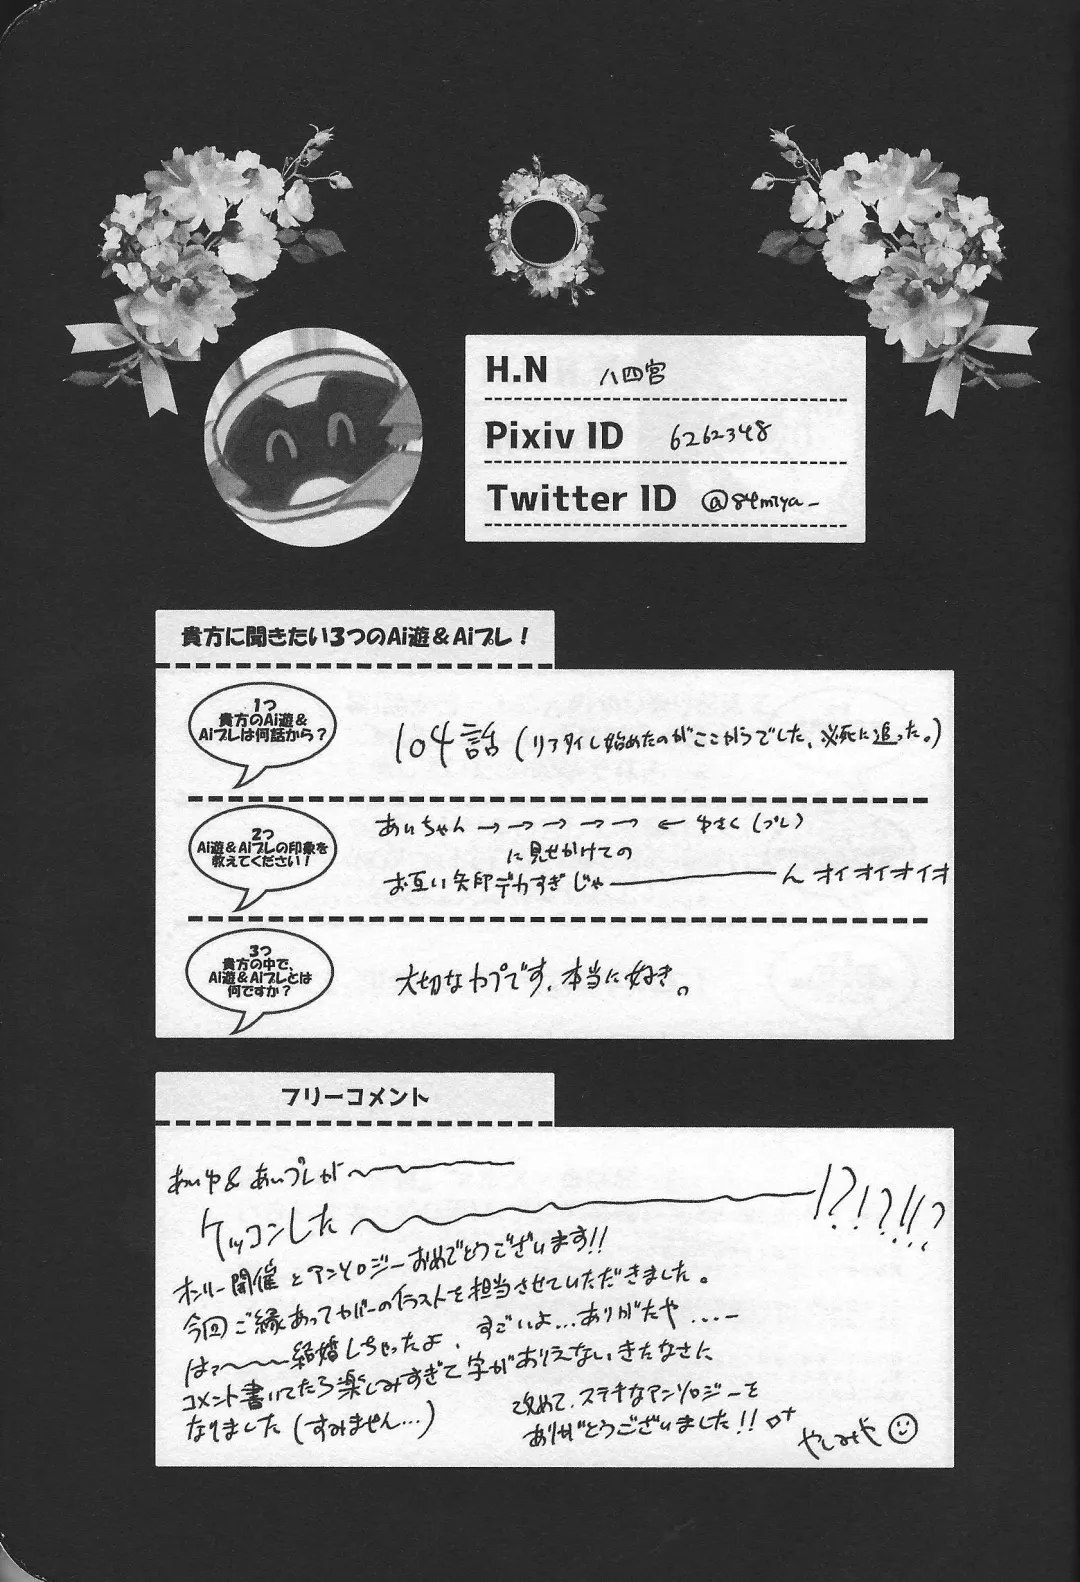 H.N 八四宮
Pixiv ID 6262348
Twitter ID @84miya_
貴方に聞きたい3つのAi遊&Aiプレ!
1つ
貴方のAi遊&
Aiプレは何話から?
104話(リアタイし始めたのがここからでした、※死に追った。)
2つ
Ai遊&Aiプレの印象を
教えてください!
あいちゃん→→→→→←ゆさく(プレ)
に見せかけての
お互い矢印デカすぎじゃーーーーーん オイオイオイオ
3つ
貴方の中で、
Ai遊&Aiプレとは
何ですか?
大切なカプです、本当に好き。
フリーコメント
あいゆ&あいプレが〜〜〜
ケッコンした〜〜〜!?!?!!?
オンリー開催とアンソロジーおめでとうございます!!
今回ご縁あってカバーのイラストを担当させていただきました。
はァ〜〜〜結婚しちゃったよ、すごいよ...ありがたや....ー
コメント書いてたら楽しみすぎて字がありえないきたなさに
なりました(すみません...)
改めて、ステキなアンソロジーを
ありがとうございました!!
やしみや